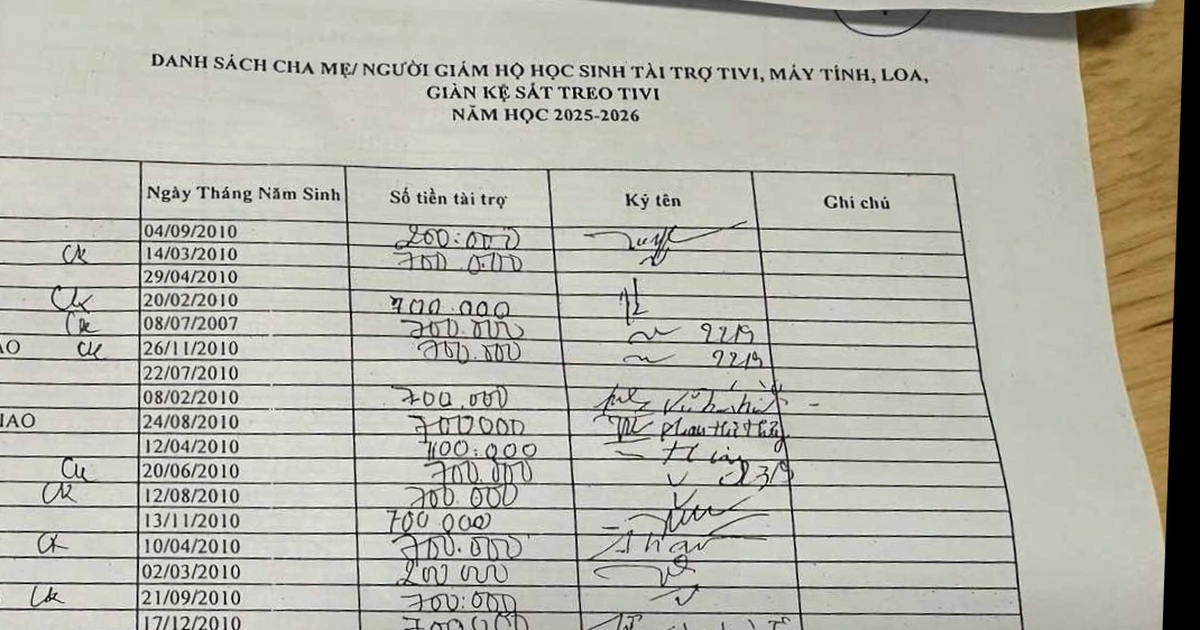 DANH SÁCH CHA MẸ/ NGƯỜI GIÁM HỘ HỌC SINH TÀI TRỢ TIVI, MÁY TÍNH, LOA,
GIÀN KỆ SẮT TREO TIVI
NĂM HỌC 2025-2026
Ngày Tháng Năm Sinh Số tiền tài trợ Ký tên Ghi chú
04/09/2010 200.000
CK 14/03/2010 700.000
29/04/2010
CK 20/02/2010 700.000
CK 08/07/2007 700.000 22/9
AO CK 26/11/2010 700.000 22/9
22/07/2010
08/02/2010 700.000
IAO 24/08/2010 700000
12/04/2010 400.000
CK 20/06/2010 700.000 23/9
CK 12/08/2010 700.000
13/11/2010 700.000
CK 10/04/2010 700.000
02/03/2010 200 000
CK 21/09/2010 700.000
17/12/2010